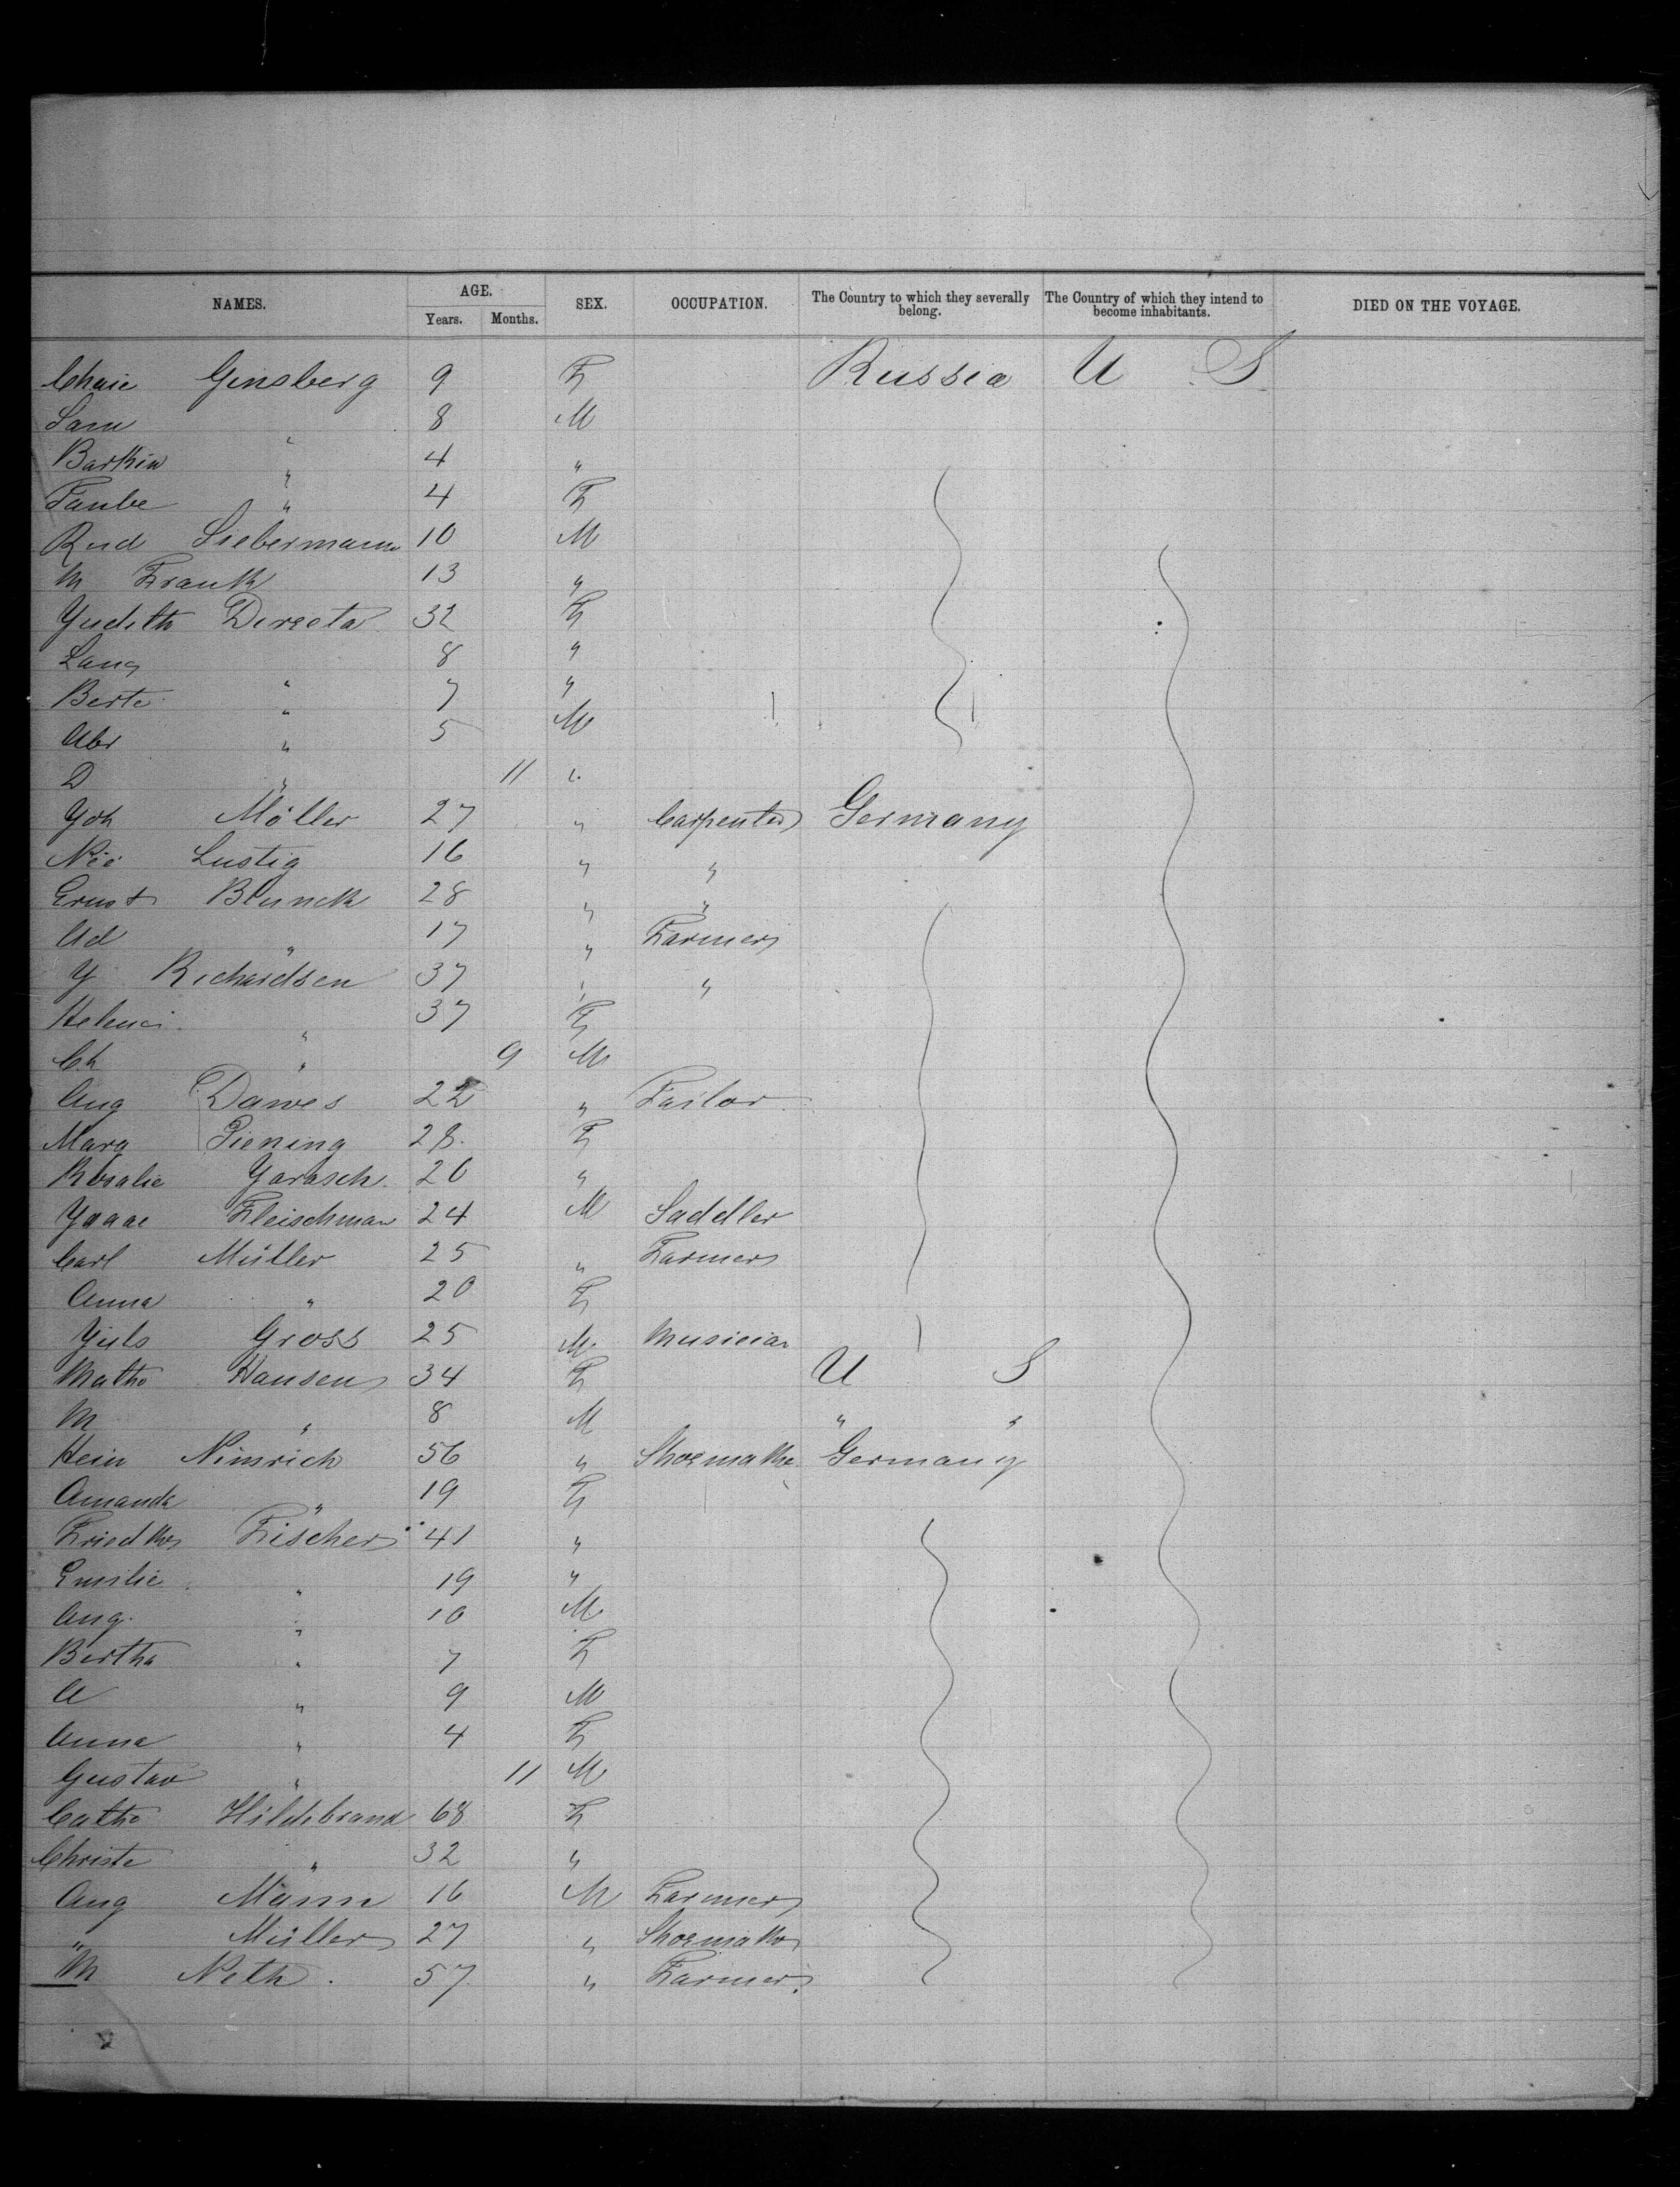 NAMES. AGE. SEX. OCCUPATION. The Country to which they severally belong. The Country of which they intend to become inhabitants. DIED ON THE VOYAGE.
Years. Months.
Chaie Ginsberg 9 F Russia U S
Sam " 8 M
Barkin " 4 "
Taube " 4 F
Rud Liebermann 10 M
M Frank 13 "
Yudith Directa 32 F
Lang " 8 "
Berte " 7 "
Abr " 5 M
D " 11 "
Joh Möller 27 " Carpenter Germany
Nic Lustig 16 " "
Ernst Blunck 28 " "
Ad " 17 " Farmer
Y Richardsen 37 " "
Helene " 37 F
Ch " 9 M
Aug Dawes 22 " Tailor
Marg Piening 28 F
Rosalie Yarasch 20 "
Ysaac Fleischman 24 M Saddler
Carl Müller 25 " Farmer
Anna " 20 F
Yuls Gross 25 M Musician
Mathe Hansen 34 F U S
M " 8 M " "
Hein Nimrich 56 " Shoemaker Germany
Amanda " 19 F
Friedke Fischer 41 "
Emilie " 19 "
Aug. " 10 M
Bertha " 7 F
A " 9 M
Anna " 4 F
Gustav " 11 M
Cathe Hildebrand 68 F
Christe " 32 "
Aug Mann 16 M Farmer
" Müller 27 " Shoemaker
M Neth. 57 " Farmer